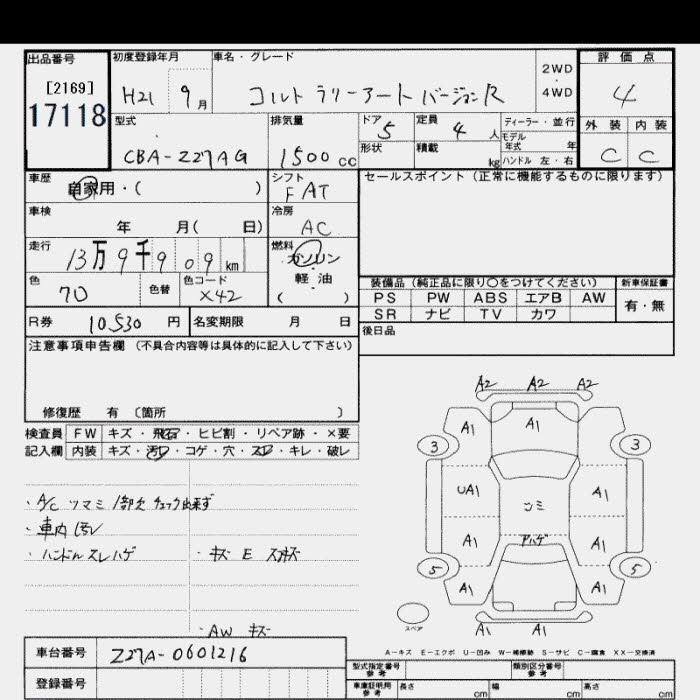 出品番号 初度登録年月 車名・グレード 評価点
[2169] H21 9月 コルト ラリーアート バージョンR 2WD・4WD 4
17118 型式 排気量 ドア 5 定員 4人 ディーラー・並行 外装 内装
CBA-Z27AG 1500cc 形状 積載 kg モデル年式 年 ハンドル 左・右 C C
車歴 自家用・( ) シフト FAT セールスポイント（正常に機能するものに限ります）
車検 年 月( 日) 冷房 AC
走行 13万9千909km 燃料 ガソリン
色 色替 色コード 軽・油 装備品（純正品に限り○をつけてください） 新車保証書
X42 ( ) PS PW ABS エアB AW 有・無
SR ナビ TV カワ
R券 10,530円 名変期限 月 日 後日品
注意事項申告欄（不具合内容等は具体的に記入して下さい）
修復歴 有 〔箇所 〕
検査員 FW キズ・飛石・ヒビ割・リペア跡・×要
記入欄 内装 キズ・汚れ・コゲ・穴・スレ・キレ・破レ
A2 A2 A2
A1 A1
3 3
UA1 ツミ A1
A1 アハゲ A1
5 5
A1 A1
スペア A1 A1
・A/C ツマミ 1部欠 チェック出来ず
・車内汚レ
・ハンドルスレハゲ ・キズ E スリキズ
・AW キズ
A－キズ E－エクボ U－凹み W－補修跡 S－サビ C－腐食 XX－交換済
車台番号 Z27A-0601216 型式指定番号 参考 類別区分番号 参考
登録番号 車庫証明用 参考 長さ cm 幅 cm 高さ cm